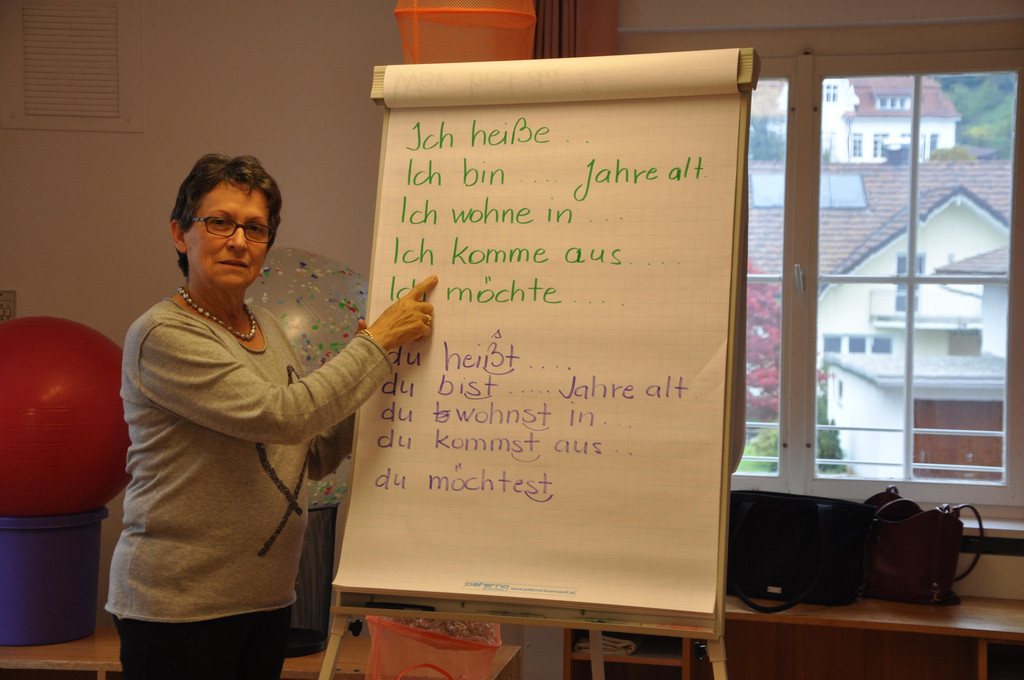 Ich heiße . .
Ich bin .... Jahre alt.
Ich wohne in ...
Ich komme aus ....
Ich möchte ....
du heißt ....
du bist ..... Jahre alt
du wohnst in ...
du kommst aus ...
du möchtest